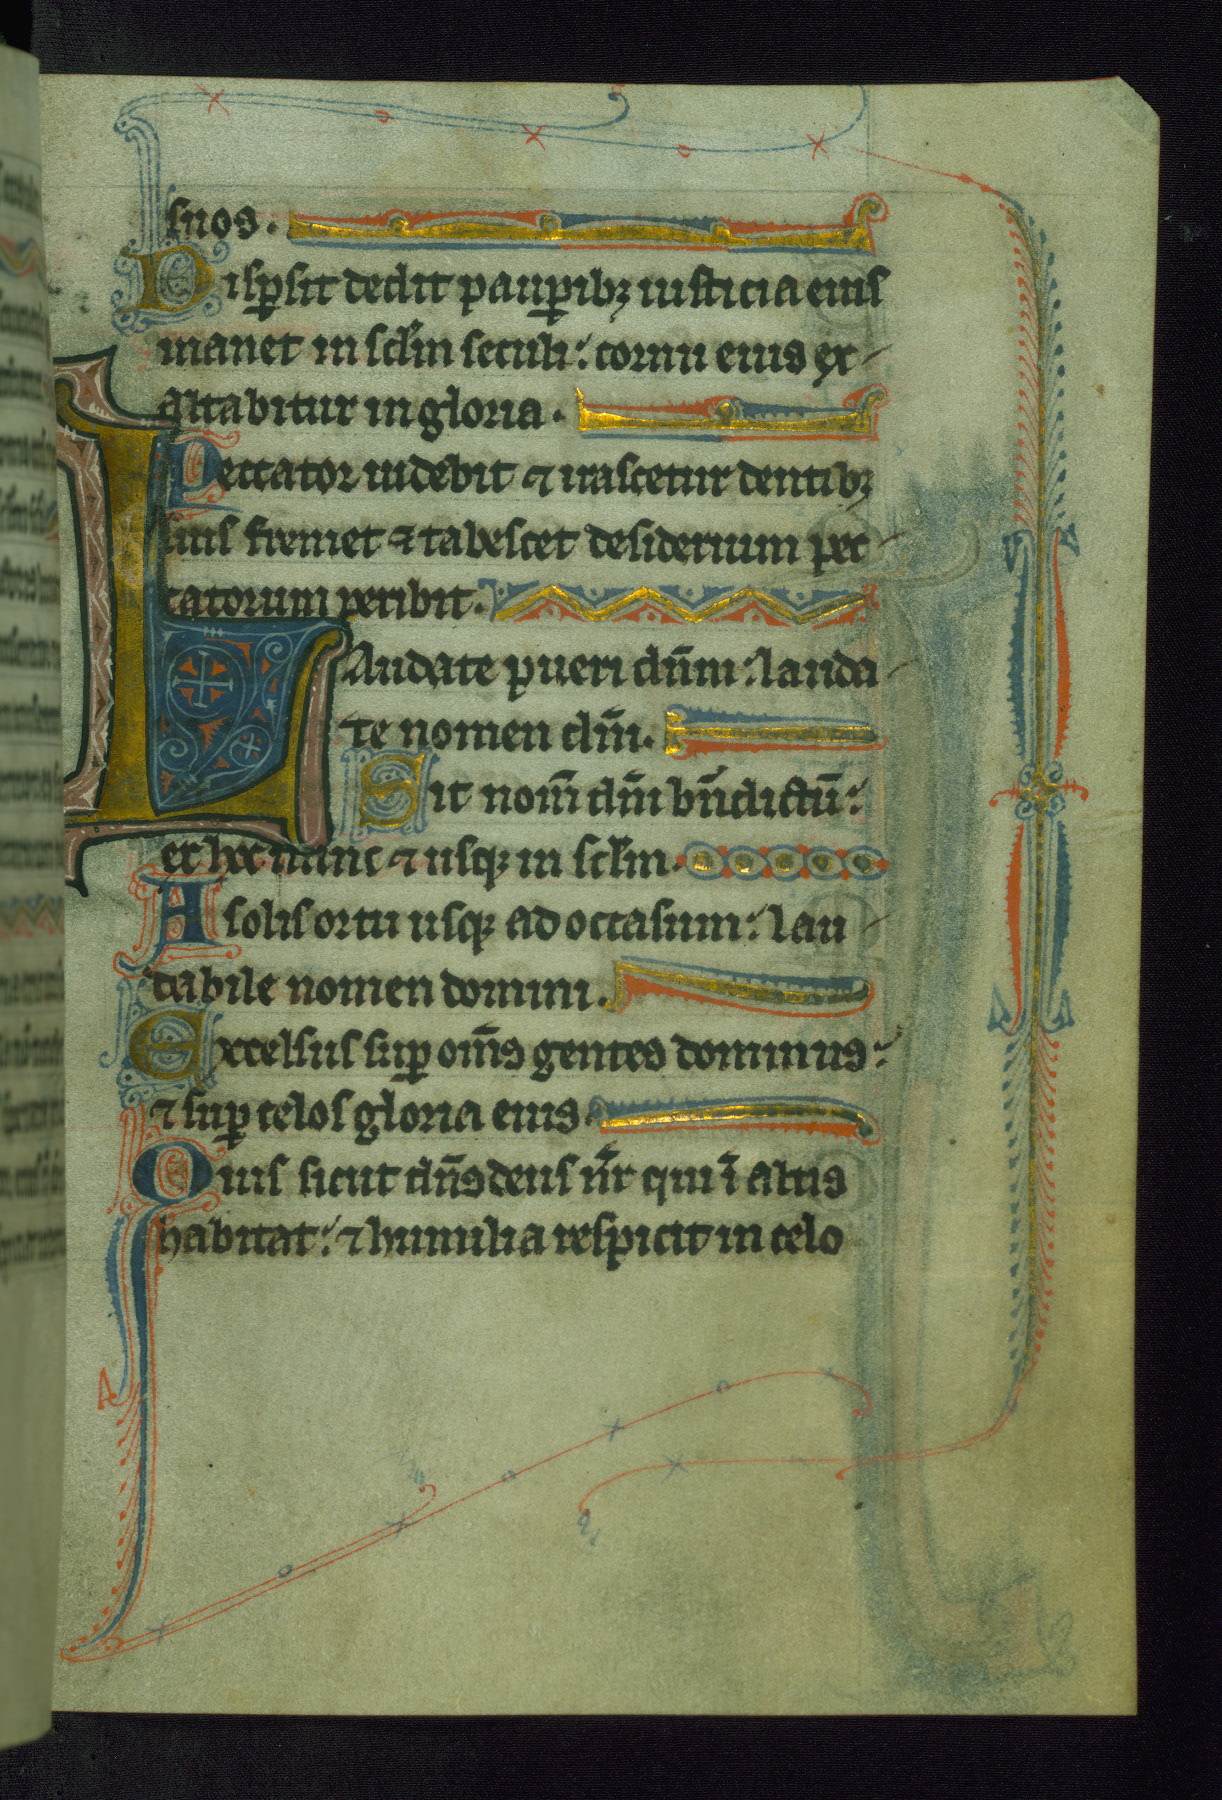 suos.
Disꝑsit dedit pauꝑibꝫ iusticia eius
manet in sc̄lm seculi: cornu eius ex-
altabitur in gloria.
Peccator uidebit ⁊ irascetur dentibꝫ
suis fremet ⁊ tabescet desiderium pec-
catorum peribit.
Laudate pueri dn̄m: lauda-
te nomen dn̄i.
Sit nom̄ dn̄i bn̄dictū:
ex hoc nunc ⁊ usqꝫ in sc̄lm.
A solis ortu usqꝫ ad occasum: lau-
dabile nomen domini.
Excelsus suꝑ om̄s gentes dominus:
⁊ suꝑ celos gloria eius.
Quis sicut dn̄s deus nr̄ qui ī altis
habitat: ⁊ humilia respicit in celo